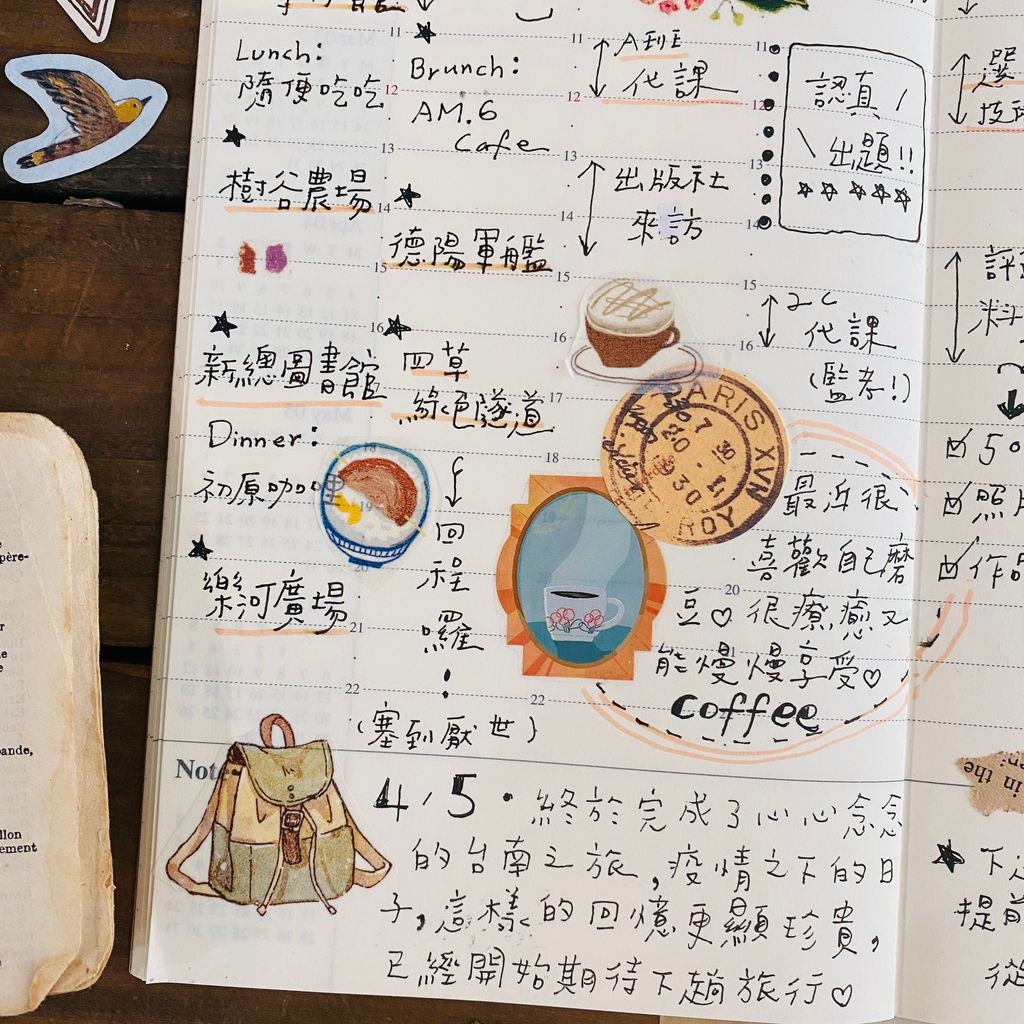 Lunch:
隨便吃吃
樹谷農場
新總圖書館
Dinner:
初原咖哩
樂河廣場
Brunch:
AM.6
Cafe
德陽軍艦
四草
綠色隧道
回
程
囉
!
(塞到厭世)
代課
出版社
來訪
認真
出題!!
2C
代課
(監考!)
PARIS XVN
ROY
最近很
喜歡自己磨
豆♡很療癒又
能慢慢享受♡
coffee
Note
4/5・終於完成了心心念念
的台南之旅,疫情之下的日
子,這樣的回憶更顯珍貴,
已經開始期待下趟旅行♡
11
12
13
14
15
16
17
18
19
20
21
22
選
技
評
料
50
照片
作品
in the
下
提前
從
père-
pande,
llon
ement